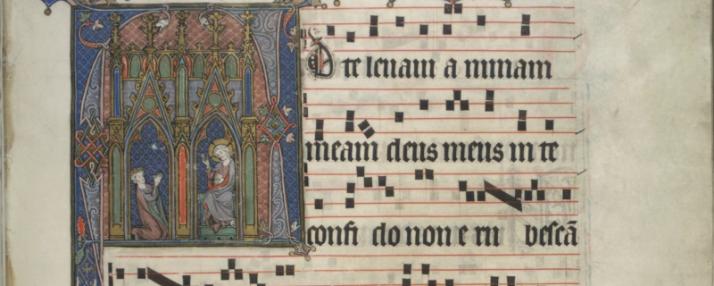 D te levavi a nimam
meam deus meus in te
confi do non e ru bescā